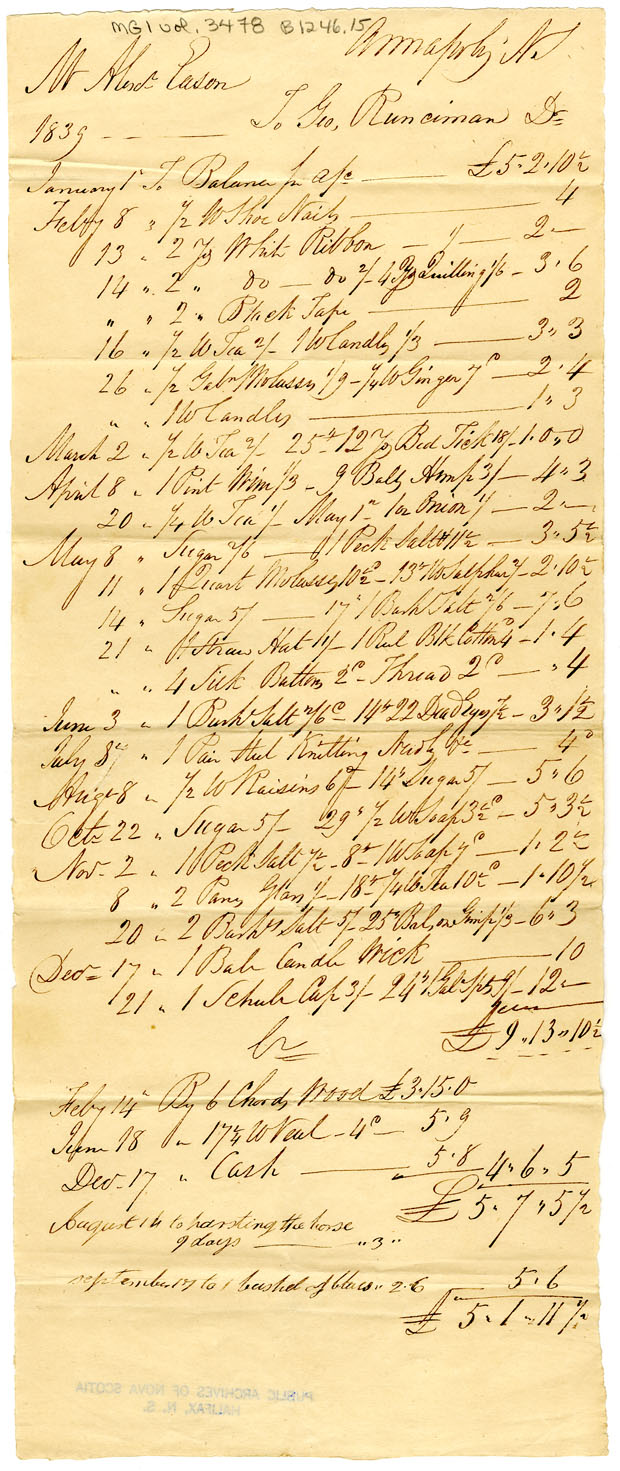 MG1 vol. 3478 B1246.15
Annapolis N.S
Mr Alexr Eason
1839 — To Geo, Runciman Dr
January 1st To Balance pr a/c — £5·2·10½
Feby 8 " ½ lb Shoe Nails — 4
13 " 2 Yds White Ribbon — 1/ — 2"—
14 " 2 " do — do 2/- 4 Yds Quilling 1/6 — 3"6
" " 2 " Black Tape — 2
16 " ½ lb Tea 2/- 1 lb Candles 1/3 — 3"3
26 " ½ Galn Molasses 1/9 - ¼ lb Ginger 7d — 2"4
" " 1 lb Candles — 1"3
March 2 " ½ lb Tea 2/- 25th 12 Yds Bed Tick 18/- 1·0"0
April 8 " 1 Pint Wine 1/3 - 9 Balls Hemp 3/- 4"3
20 " ¼ lb Tea 1/- May 1st Onion 1/ — 2"—
May 8 " Sugar 2/6 — 1 Peck Salt 11½ — 3"5½
11 " 1 Quart Molasses 10½d - 13th lb Sulphur 2/- 2·10½
14 " Sugar 5/ — 17th 1 Bushl Salt 2/6 — 7"6
21 " 1 Straw Hat 1/- 1 Reel Blk Cotton 4d - 1·4
" " 4 Silk Buttons 2d - Thread 2d — "4
June 3 " 1 Bushl Salt 2/6d - 14th 22 7½ - 3"1½
July 8th " 1 Pair Steel Knitting Needles &c — 4d
Augt 8 " ½ lb Raisins 6d - 14th Sugar 5/ — 5"6
Octr 22 " Sugar 5/- 29th ½ lb Soap 3½d - 5"3½
Nov. 2 " 1 Peck Salt 7½ - 8th 1 lb Soap 7d — 1·2½
8 " 2 Panes Glass 1/- 18th ¼ lb Tea 10½d — 1·10½
20 " 2 Bushls Salt 5/- 25th 1/3 - 6"3
Decr 17 " 1 Ball Candle Wick — 10
21 " 1 Cap 3/- 24th 1 Gal 9/- 12"—
£9"13"10½
Cr
Feby 14th By 6 Chords Wood £3·15·0
June 18 " 17¼ lb Veal - 4d — 5·9
Dec. 17 " Cash — " 5·8 4"6"5
£5"7"5½
August 14 to the horse
9 days — "3"
september 17 to 1 bushel of 2·6 — 5·6
£5"1"11½
PUBLIC ARCHIVES OF NOVA SCOTIA
HALIFAX, N. S.